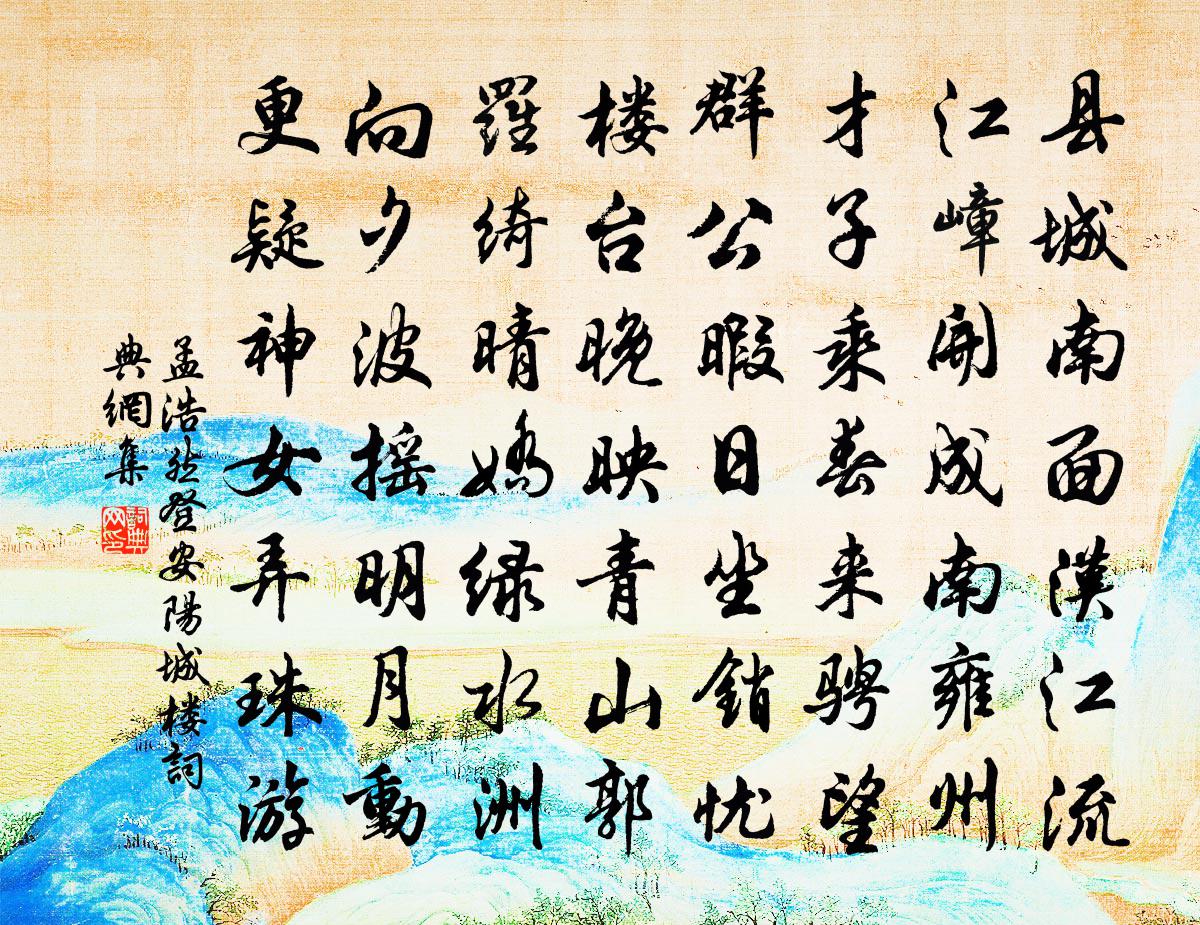 县城南面漢江流
江嶂開成南雍州
才子乘春来骋望
群公暇日坐銷忧
楼台晚映青山郭
羅绮晴嬌绿水洲
向夕波摇明月動
更疑神女弄珠游
孟浩然登安陽城楼詞
典網集
詞典
网印